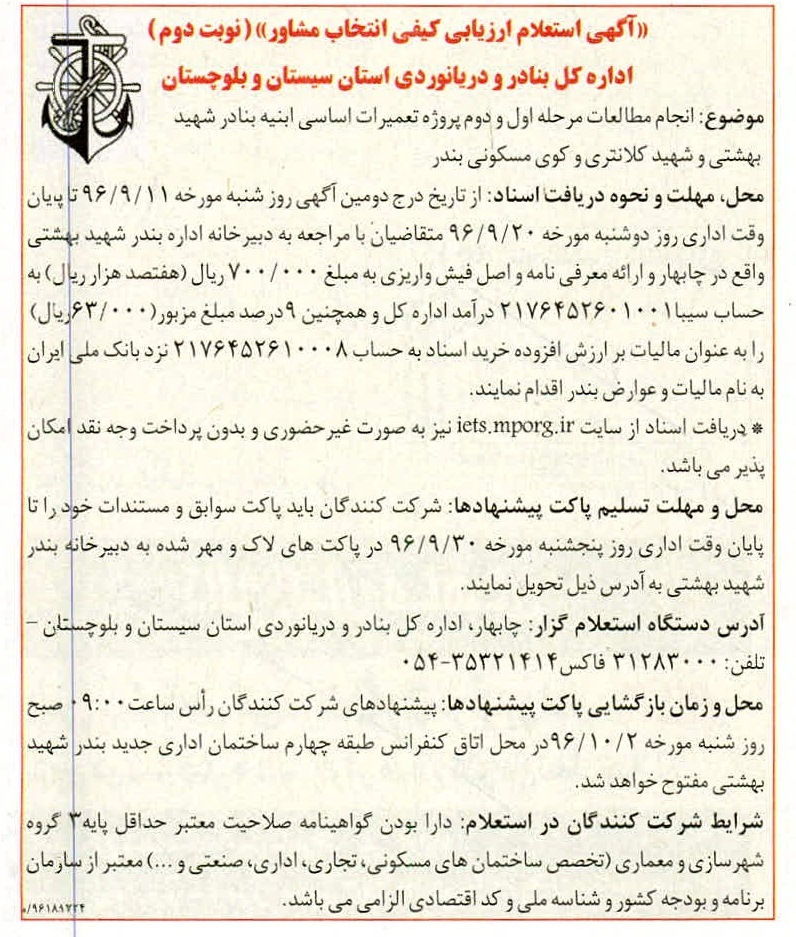 «آگهی استعلام ارزیابی کیفی انتخاب مشاور» (نوبت دوم)
اداره کل بنادر و دریانوردی استان سیستان و بلوچستان
موضوع: انجام مطالعات مرحله اول و دوم پروژه تعمیرات اساسی ابنیه بنادر شهید
بهشتی و شهید کلانتری و کوی مسکونی بندر
محل، مهلت و نحوه دریافت اسناد: از تاریخ درج دومین آگهی روز شنبه مورخه ۹۶/۹/۱۱ تا پایان
وقت اداری روز دوشنبه مورخه ۹۶/۹/۲۰ متقاضیان با مراجعه به دبیرخانه اداره بندر شهید بهشتی
واقع در چابهار و ارائه معرفی نامه و اصل فیش واریزی به مبلغ ۷۰۰/۰۰۰ ریال (هفتصد هزار ریال) به
حساب سیبا ۲۱۷۶۴۵۲۶۰۱۰۰۱ درآمد اداره کل و همچنین ۹ درصد مبلغ مزبور (۶۳/۰۰۰ریال)
را به عنوان مالیات بر ارزش افزوده خرید اسناد به حساب ۲۱۷۶۴۵۲۶۱۰۰۰۸ نزد بانک ملی ایران
به نام مالیات و عوارض بندر اقدام نمایند.
* دریافت اسناد از سایت iets.mporg.ir نیز به صورت غیرحضوری و بدون پرداخت وجه نقد امکان
پذیر می باشد.
محل و مهلت تسلیم پاکت پیشنهادها: شرکت کنندگان باید پاکت سوابق و مستندات خود را تا
پایان وقت اداری روز پنجشنبه مورخه ۹۶/۹/۳۰ در پاکت های لاک و مهر شده به دبیرخانه بندر
شهید بهشتی به آدرس ذیل تحویل نمایند.
آدرس دستگاه استعلام گزار: چابهار، اداره کل بنادر و دریانوردی استان سیستان و بلوچستان –
تلفن: ۳۱۲۸۳۰۰۰ فاکس ۳۵۳۲۱۴۱۴-۰۵۴
محل و زمان بازگشایی پاکت پیشنهادها: پیشنهادهای شرکت کنندگان رأس ساعت ۰۹:۰۰ صبح
روز شنبه مورخه ۹۶/۱۰/۲ در محل اتاق کنفرانس طبقه چهارم ساختمان اداری جدید بندر شهید
بهشتی مفتوح خواهد شد.
شرایط شرکت کنندگان در استعلام: دارا بودن گواهینامه صلاحیت معتبر حداقل پایه۳ گروه
شهرسازی و معماری (تخصص ساختمان های مسکونی، تجاری، اداری، صنعتی و ...) معتبر از سازمان
برنامه و بودجه کشور و شناسه ملی و کد اقتصادی الزامی می باشد.